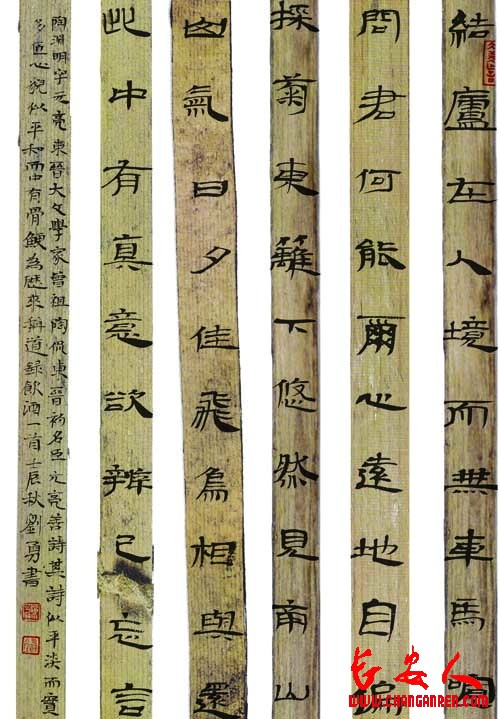 結廬在人境而無車馬喧
問君何能爾心遠地自偏
採菊東籬下悠然見南山
山氣日夕佳飛鳥相與還
此中有真意欲辨已忘言
陶淵明字元亮東晉大文學家曾祖陶侃東晉初名臣元亮善詩其詩似平淡而實
多匠心貌似平和而中有骨鯁為歷來稱道錄飲酒一首壬辰秋劉勇書
长安人
WWW.CHANGANREN.COM